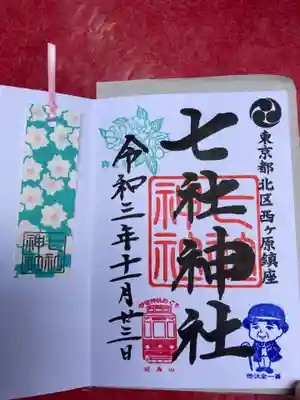 東京都北区西ヶ原鎮座
七社神社
七社
神社
令和三年十一月廿三日
飛鳥山
渋沢栄一翁
七社
神社